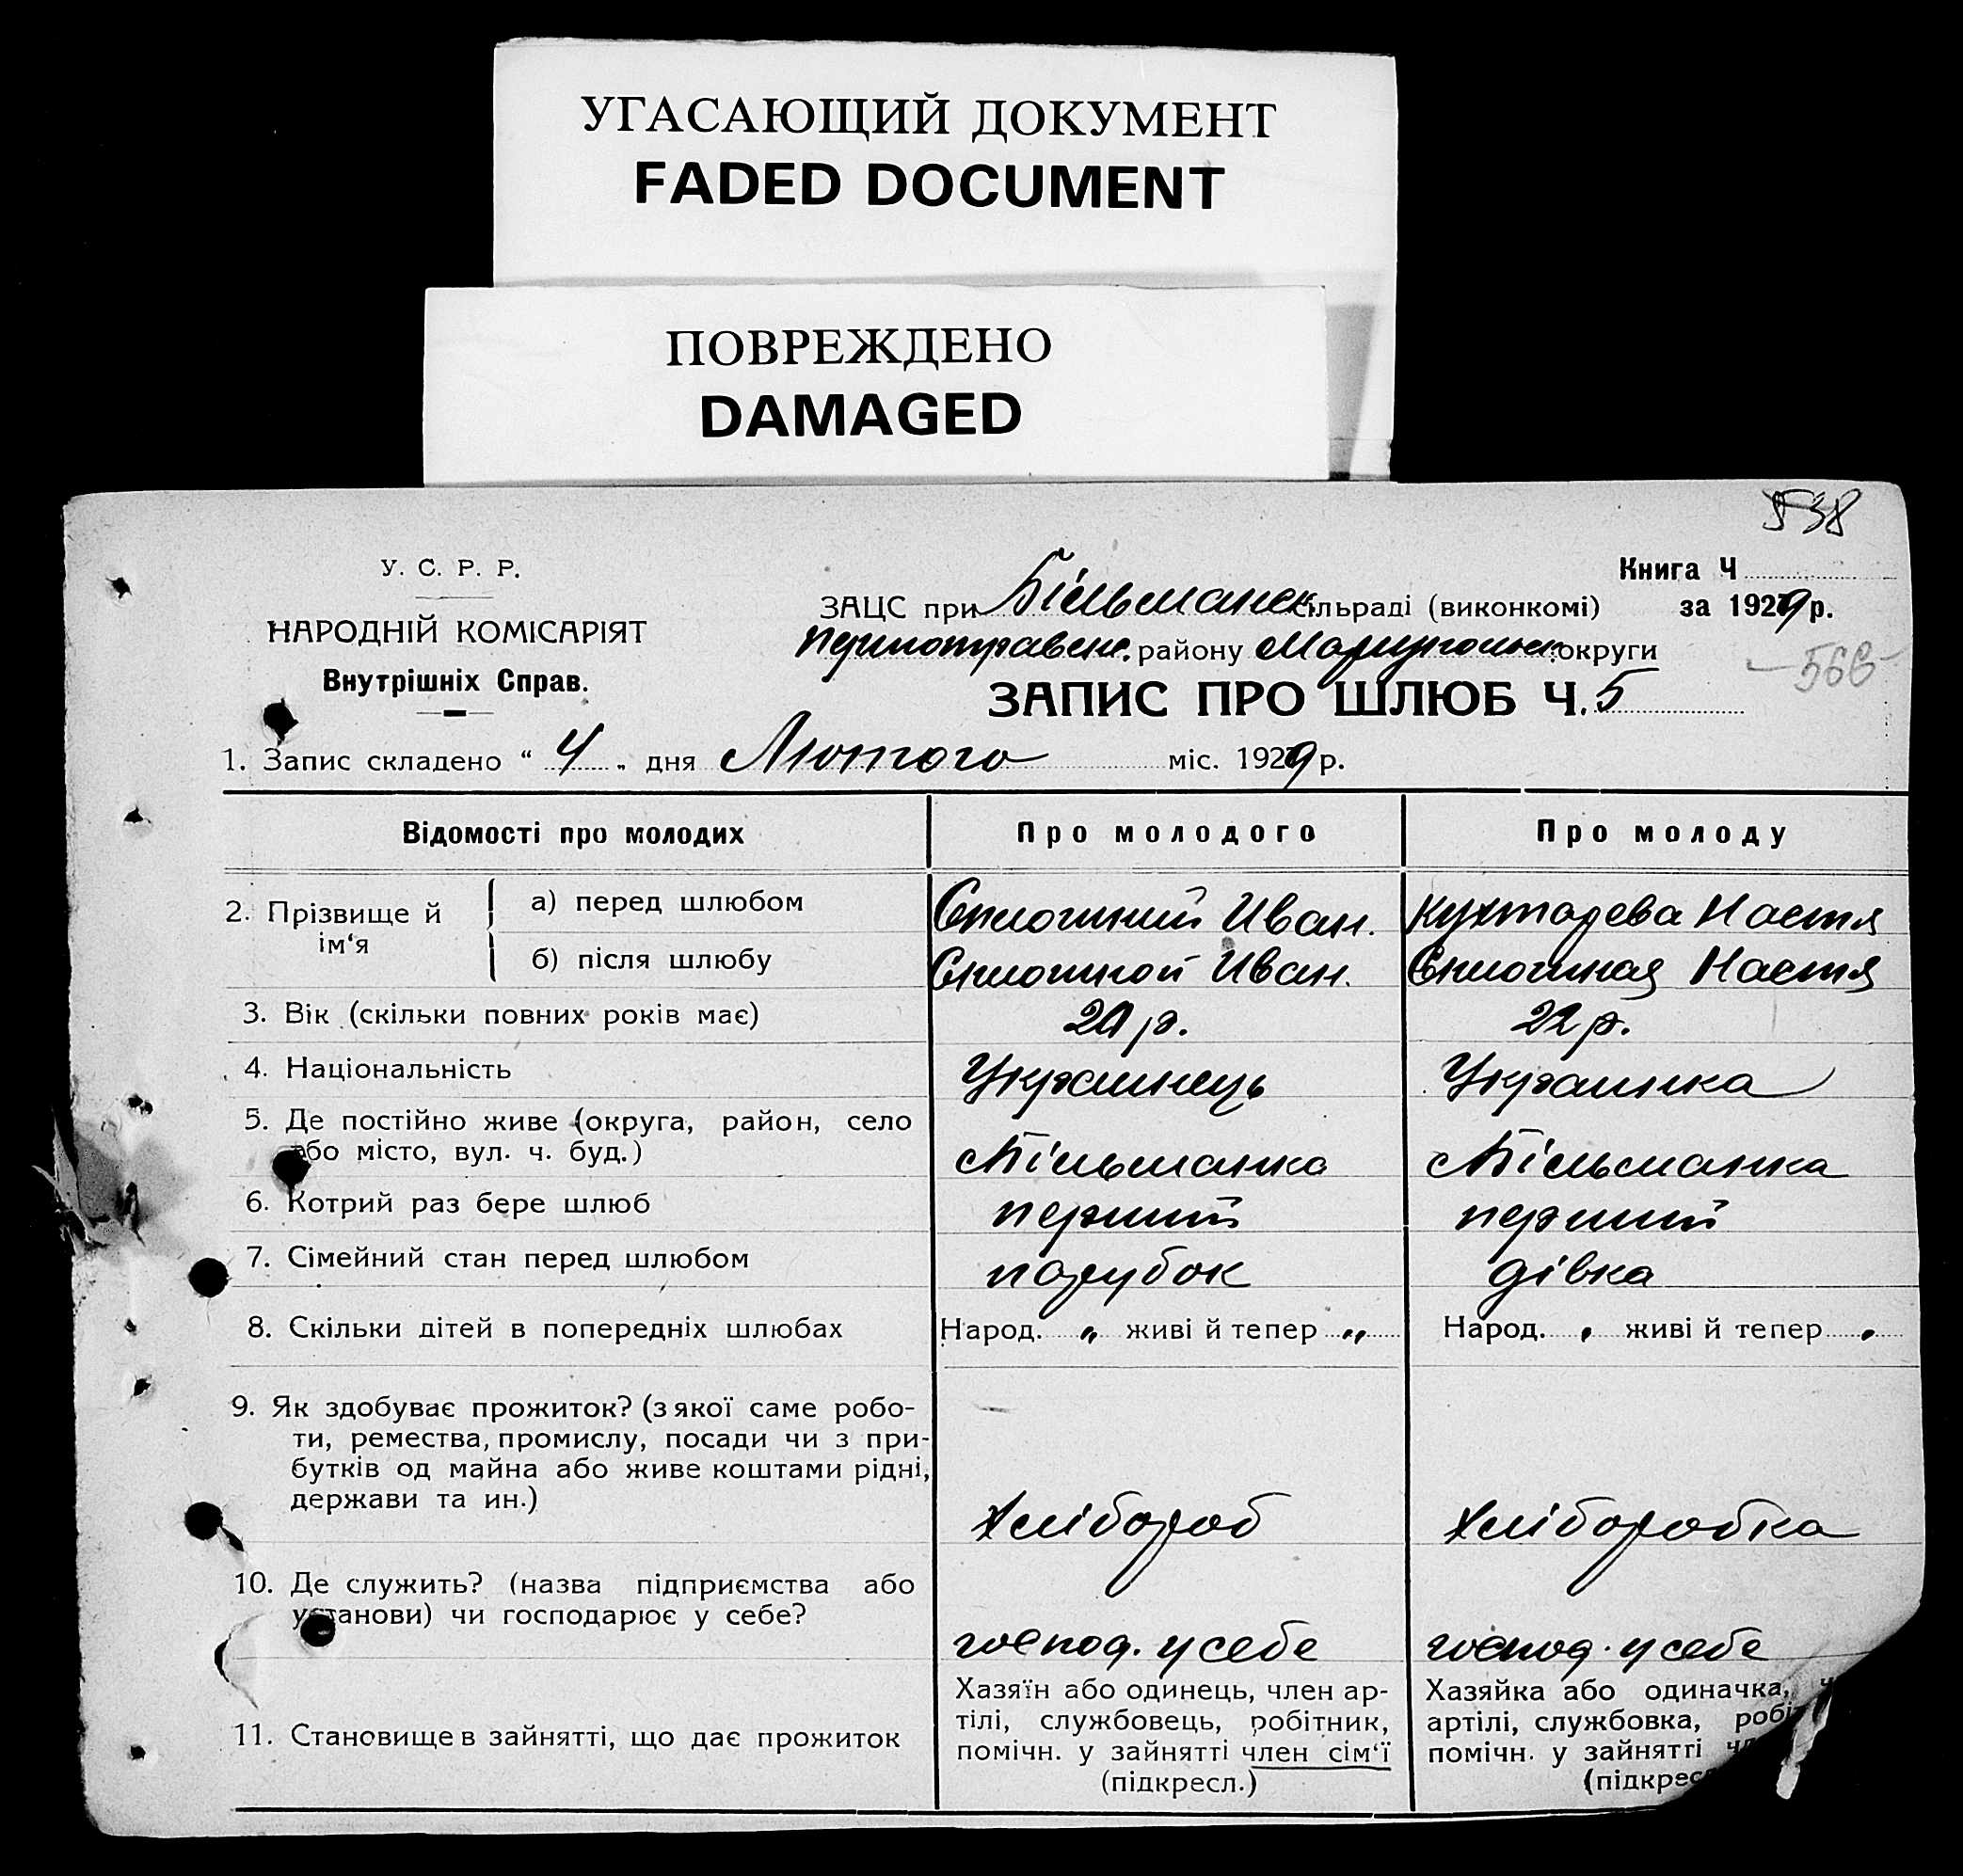 УГАСАЮЩИЙ ДОКУМЕНТ
FADED DOCUMENT
ПОВРЕЖДЕНО
DAMAGED
538
У. С. Р. Р.
НАРОДНІЙ КОМІСАРІЯТ
Внутрішніх Справ.
Книга Ч
ЗАЦС при Більманск. сільраді (виконкомі) за 1929 р.
району Маріупольск. округи
566
ЗАПИС ПРО ШЛЮБ Ч. 5
1. Запис складено “ 4 „ дня Лютого міс. 1929 р.
Відомості про молодих Про молодого Про молоду
2. Прізвище й ім‘я
а) перед шлюбом Сплошний Иван. Кухтарева Настя
б) після шлюбу Сплошной Иван. Сплошная Настя
3. Вік (скільки повних років має) р. 22 р.
4. Національність Украинець Украинка
5. Де постійно живе (округа, район, село
або місто, вул. ч. буд.) с Більманка с Більманка
6. Котрий раз бере шлюб перший перший
7. Сімейний стан перед шлюбом парубок дівка
8. Скільки дітей в попередніх шлюбах Народ. „ живі й тепер „ Народ. живі й тепер
9. Як здобуває прожиток? (з якої саме робо-
ти, ремества, промислу, посади чи з при-
бутків од майна або живе коштами рідні,
держави та ин.)
Хлібороб Хлібо робка
10. Де служить? (назва підприємства або
установи) чи господарює у себе?
господ. у себе господ. у себе
11. Становище в зайнятті, що дає прожиток
Хазяїн або одинець, член ар-
тілі, службовець, робітник,
помічн. у зайнятті член сім‘ї
(підкресл.)
Хазяйка або одиначка,
артілі, службовка,
помічн. у зайнятті